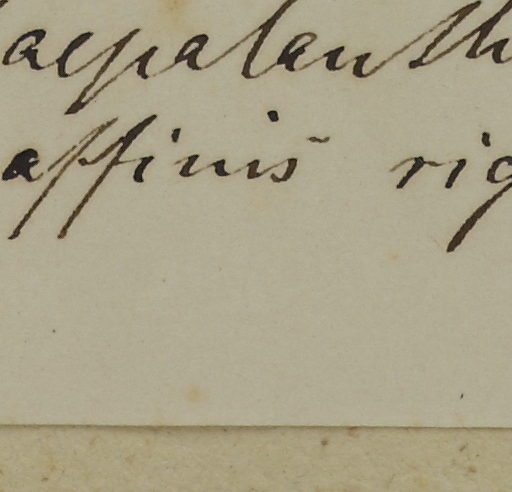 aepalanth
affinis rig